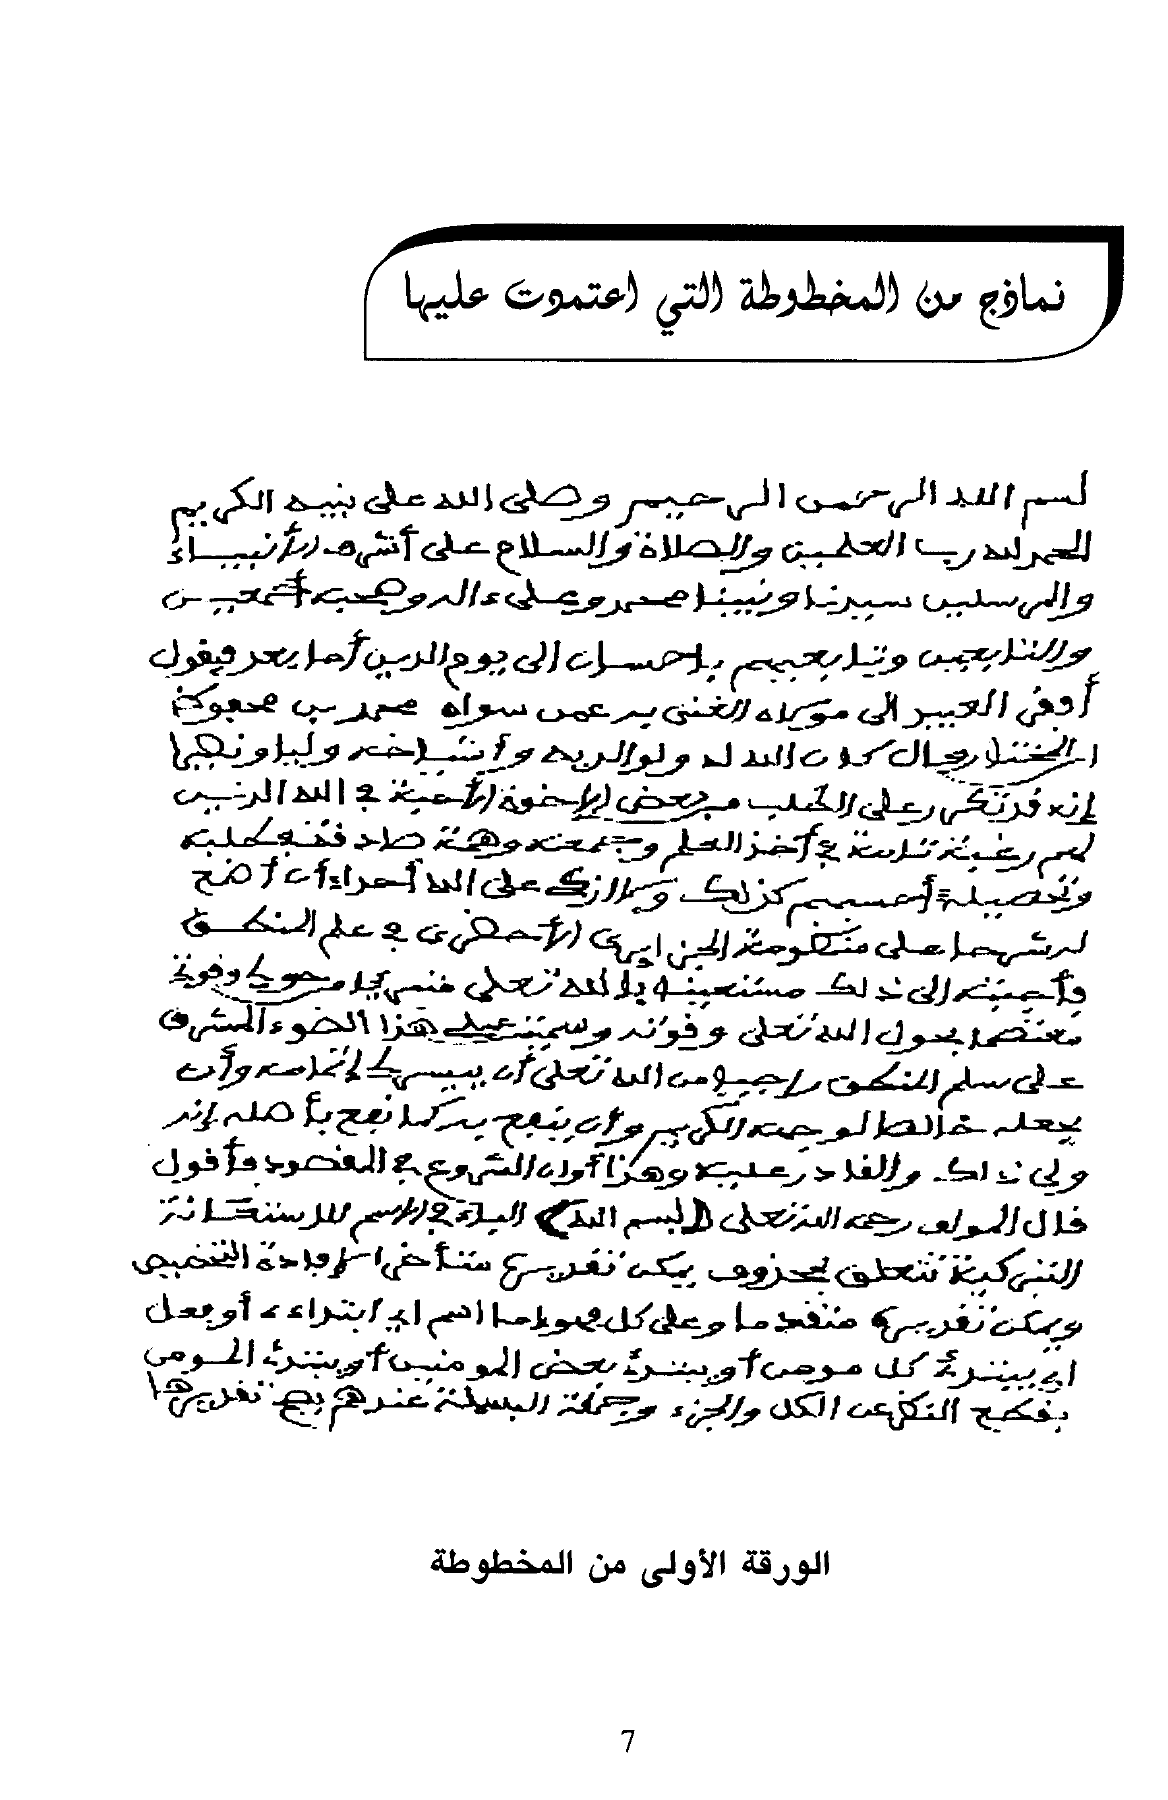 نماذج من المخطوطة التي اعتمدت عليها
بسم الله الرحمن الرحيم وصلى الله على نبيه الكريم
الحمد لله رب العلمين والصلاة والسلام على أشرف الأنبياء
والمرسلين سيدنا ونبينا محمد وعلى ءاله وصحبه أجمعين
والتابعين وتابعيهم بإحسان إلى يوم الدين أما بعد فيقول
أفقر العبيد الى مولاه الغني به عمن سواه محمد بن محفوظ
كان الله له ولوالديه وأشياخه وليا ونصيرا
إنه قد تكرر علي الطلب من بعض الإخوة الأحبة في الله الذين
لهم رغبة ثابتة في أخذ العلم وجمعه وهمة صادقة في طلبه
وتحصيله أحسبهم كذلك ولا أزكي على الله أحدا أن أضع
لهم شرحا على منظومة الجزايري الأخضري في علم المنطق
فأجبتهم إلى ذلك مستعينا بالله تعلى متبرئا من حولي وقوتي
معتصما بحول الله تعلى وقوته وسميته هذا الضوء المشرق
على سلم المنطق راجيا من الله تعلى أن ييسر لي إتمامه وأن
يجعله خالصا لوجهه الكريم وأن ينفع به كما نفع بأصله إنه
ولي ذلك والقادر عليه وهذا أوان الشروع في المقصود فأقول
قال المولف رحمه الله تعلى (بسم الله) الباء في الاسم للاستعانة
التبركية تتعلق بمحذوف يمكن تقديره متأخرا لإفادة التخصيص
ويمكن تقديره متقدما وعلى كل فهو إما اسم اي ابتداء أو فعل
اي يبتدئ كل مومن أو يبتدئ بعض المومنين أو يبتدئ المومن
بقطع النظر عن الكل والجزء وجملة البسملة عندهم يصح تقديرها
الورقة الأولى من المخطوطة
7